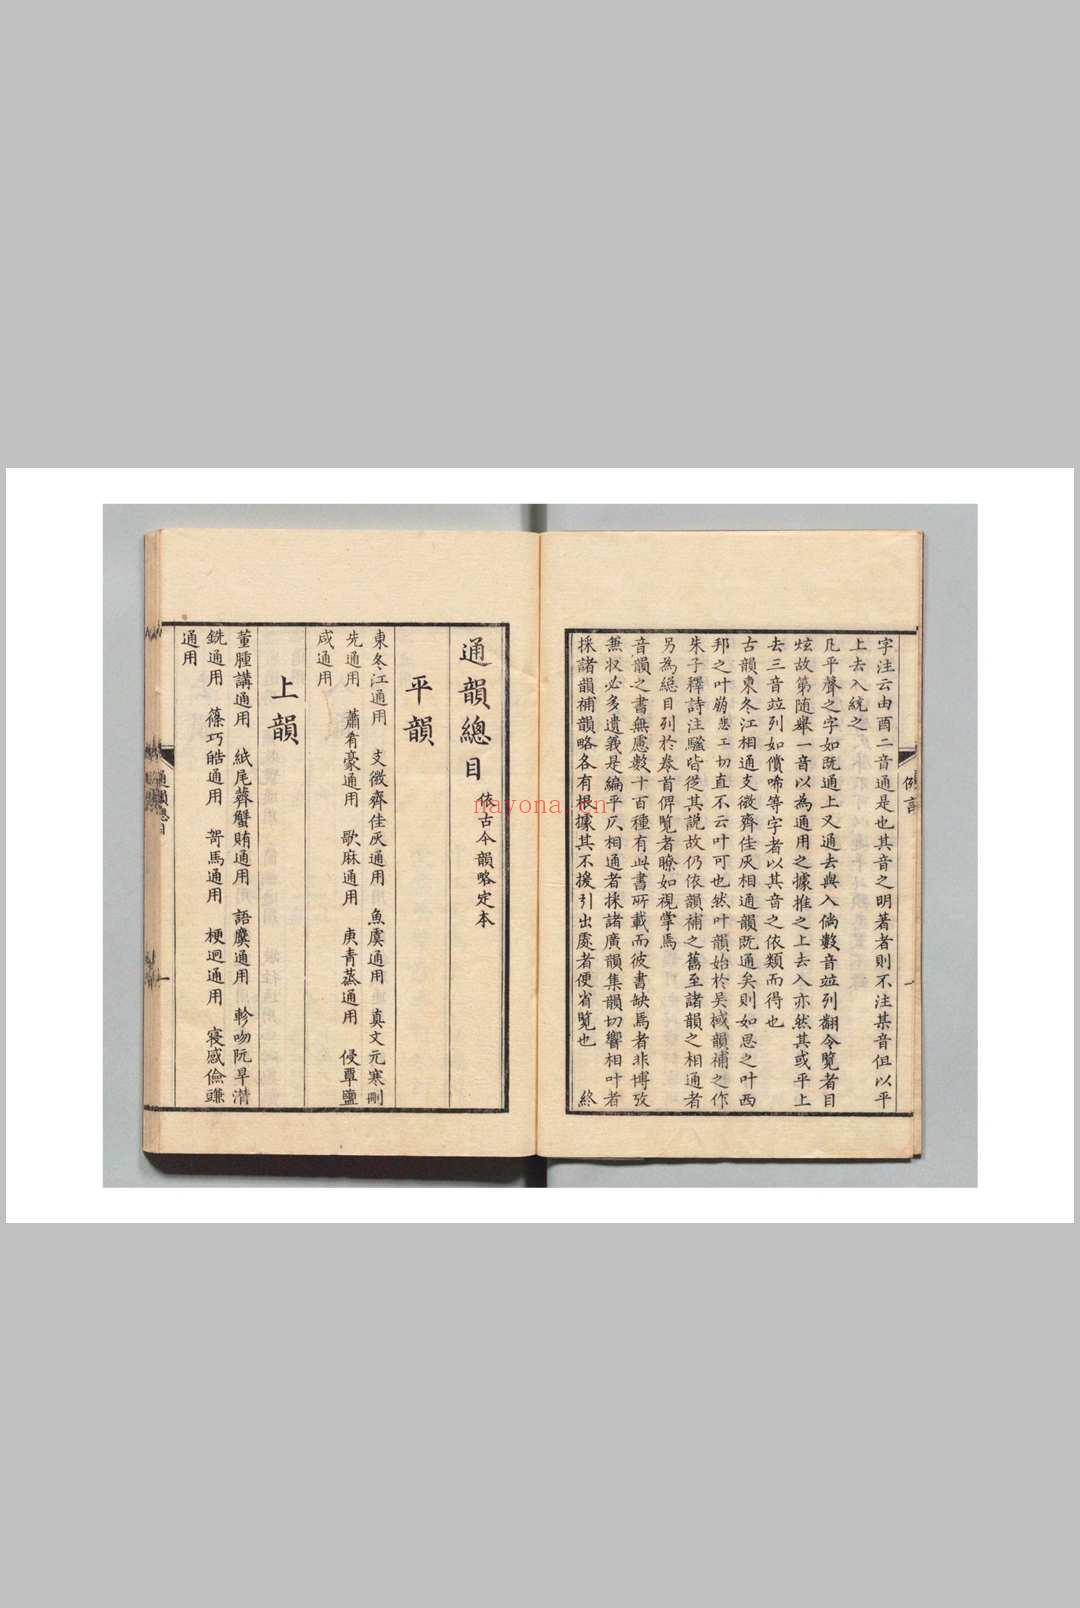 字注云由酉二音通是也其音之明著者則不注某音但以平
上去入統之
凡平聲之字如既通上又通去與入倘數音竝列翻令覽者目
炫故第随舉一音以為通用之據推之上去入亦然其或平上
去三音竝列如償唏等字者以其音之依類而得也
古韻東冬江相通支微齊佳灰相通韻既通矣則如思之叶西
邦之叶崩悲工切直不云叶可也然叶韻始於吴棫韻補之作
朱子釋詩注騷皆從其説故仍依韻補之舊至諸韻之相通者
另為總目列於卷首俾覽者瞭如視掌焉
音韻之書無慮數十百種有此書所載而彼書缺焉者非博攷
兼収必多遺義是編平仄相通者採諸廣韻集韻切響相叶者
採諸韻補韻略各有根據其不援引出處者便省覽也 終
例言
通韻總目 依古今韻略定本
平韻
東冬江通用 支微齊佳灰通用 魚虞通用 真文元寒刪
先通用 蕭肴豪通用 歌麻通用 庚青蒸通用 侵覃鹽
咸通用
上韻
董腫講通用 紙尾薺蟹賄通用 語麌通用 軫吻阮旱潸
銑通用 篠巧皓通用 哿馬通用 梗迥通用 寑感儉豏
通用
通韻總目
一
nayona.cn